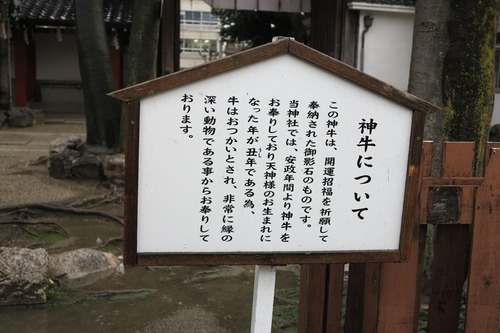 神牛について
この神牛は、開運招福を祈願して
奉納された御影石のものです。
当神社では、安政年間より神牛を
お奉りしており天神様のお生まれに
なった年が丑年である為、
うし
牛はおつかいとされ、非常に縁の
深い動物である事からお奉りして
おります。